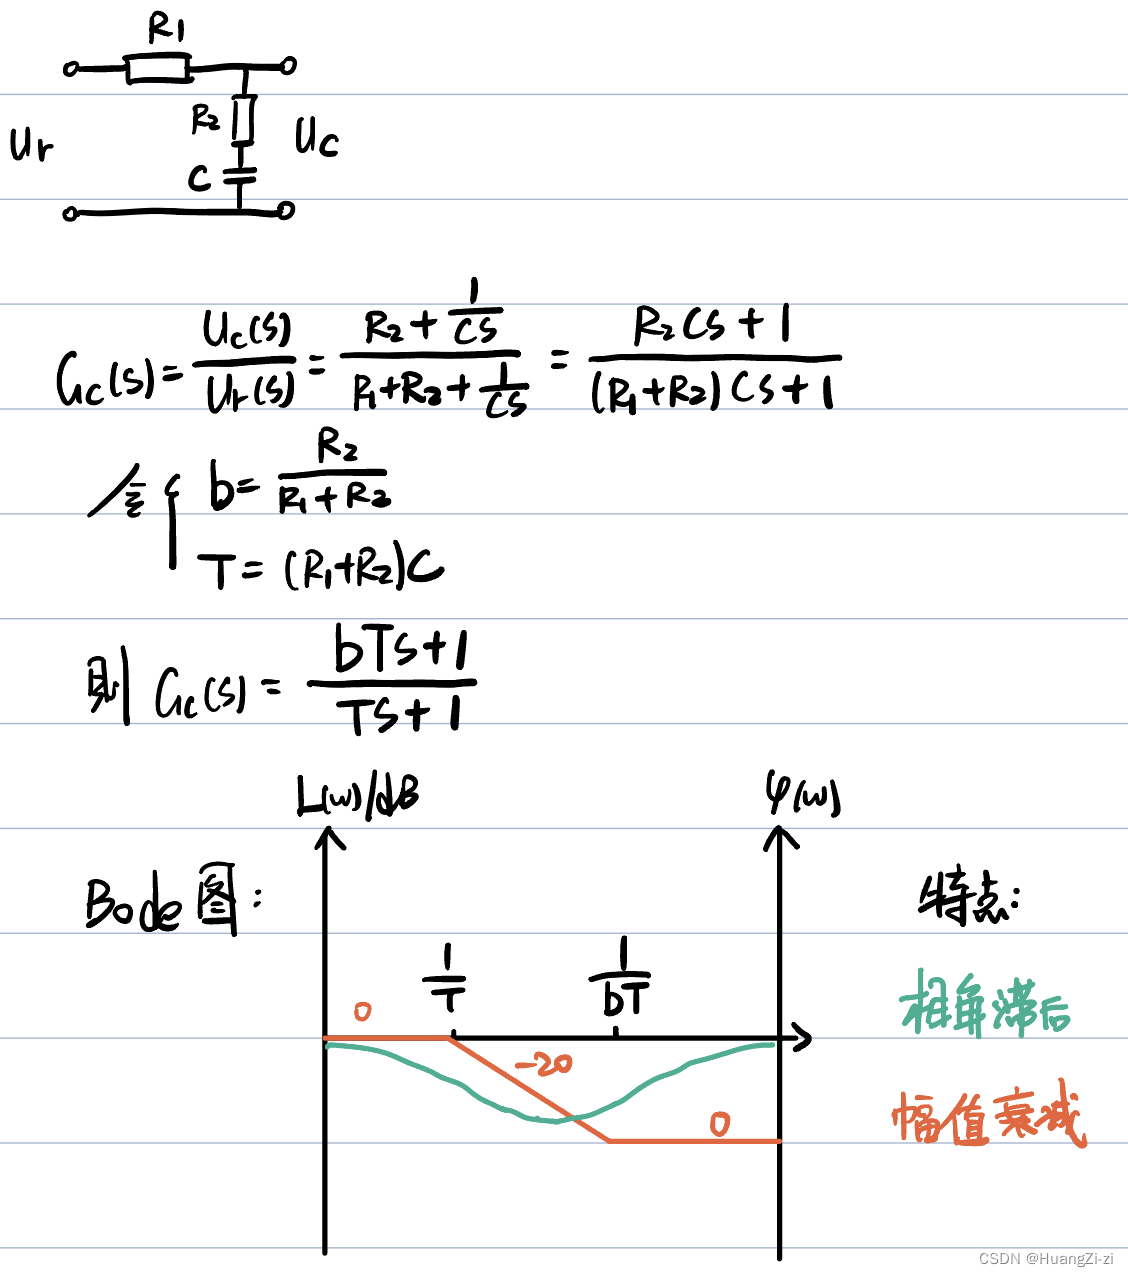 R1
R2
Ur
Uc
C
Gc(s) = Uc(s)/Ur(s) = (R2 + 1/Cs)/(R1+R2+1/Cs) = (R2Cs+1)/((R1+R2)Cs+1)
令{ b = R2/(R1+R2)
T = (R1+R2)C
则 Gc(s) = (bTs+1)/(Ts+1)
L(w)/dB
φ(w)
Bode图:
特点:
1/T
1/bT
0
相角滞后
-20
0
幅值衰减
CSDN @HuangZi-zi